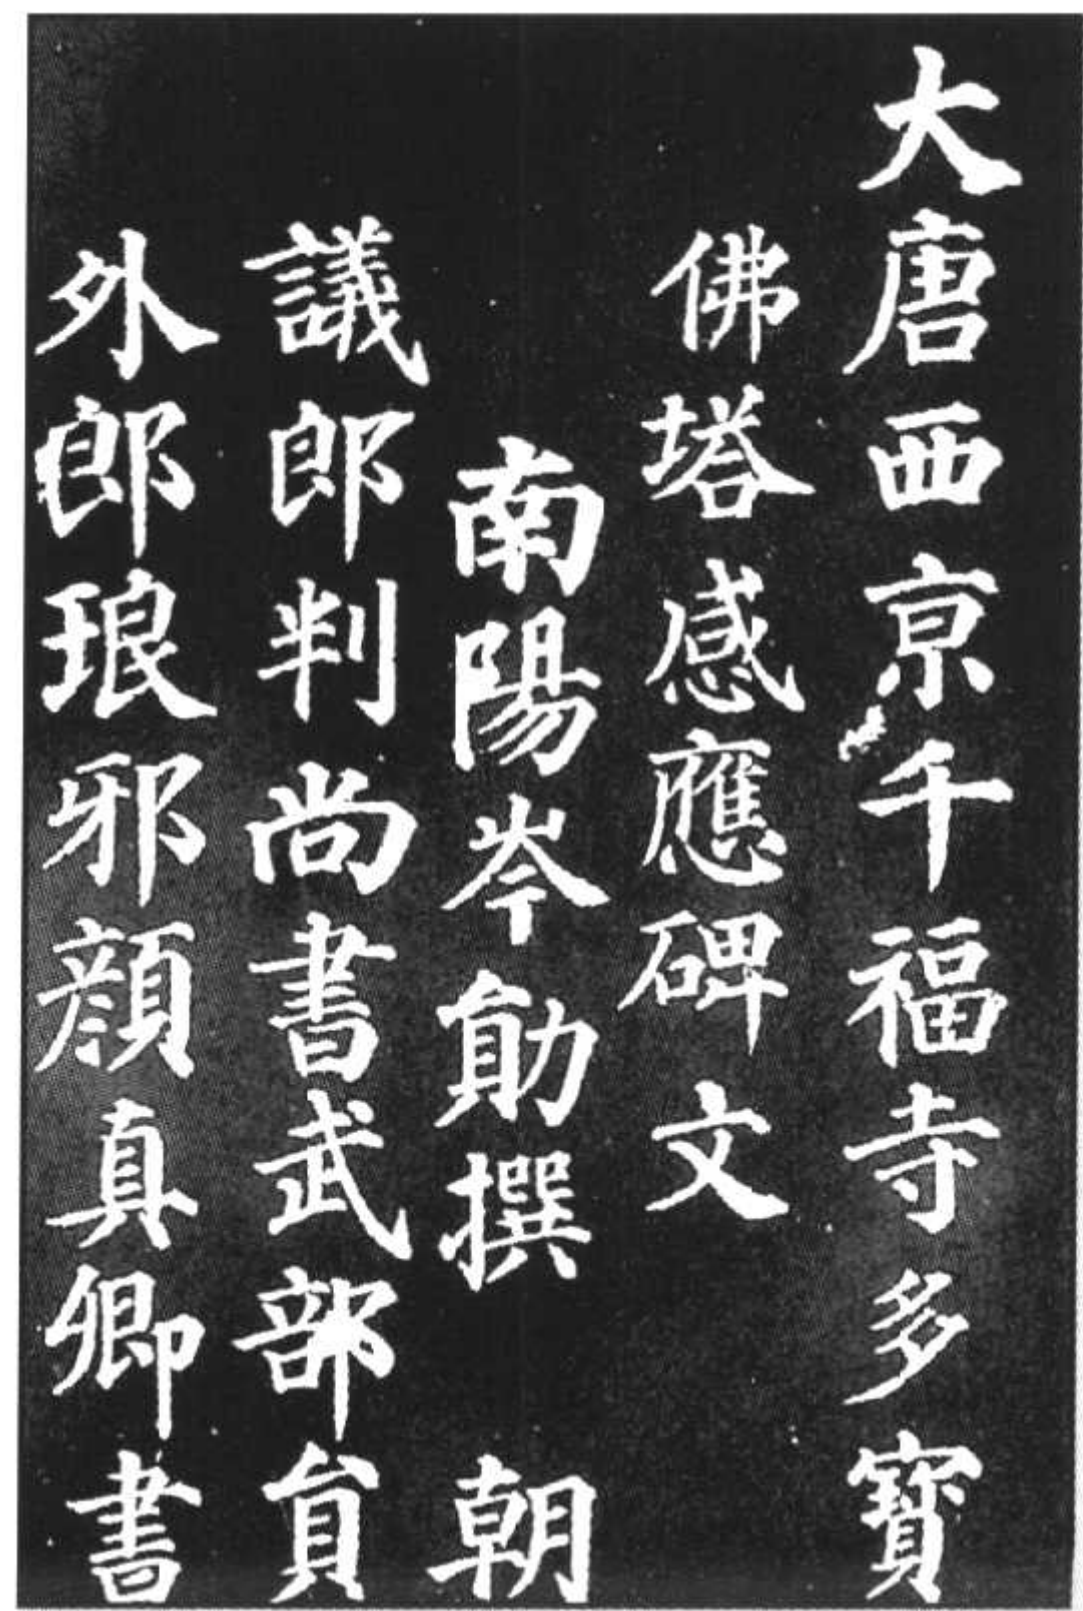 大唐西京千福寺多寶
佛塔感應碑文
南陽岑勛撰 朝
議郎判尚書武部員
外郎琅邪顏真卿書